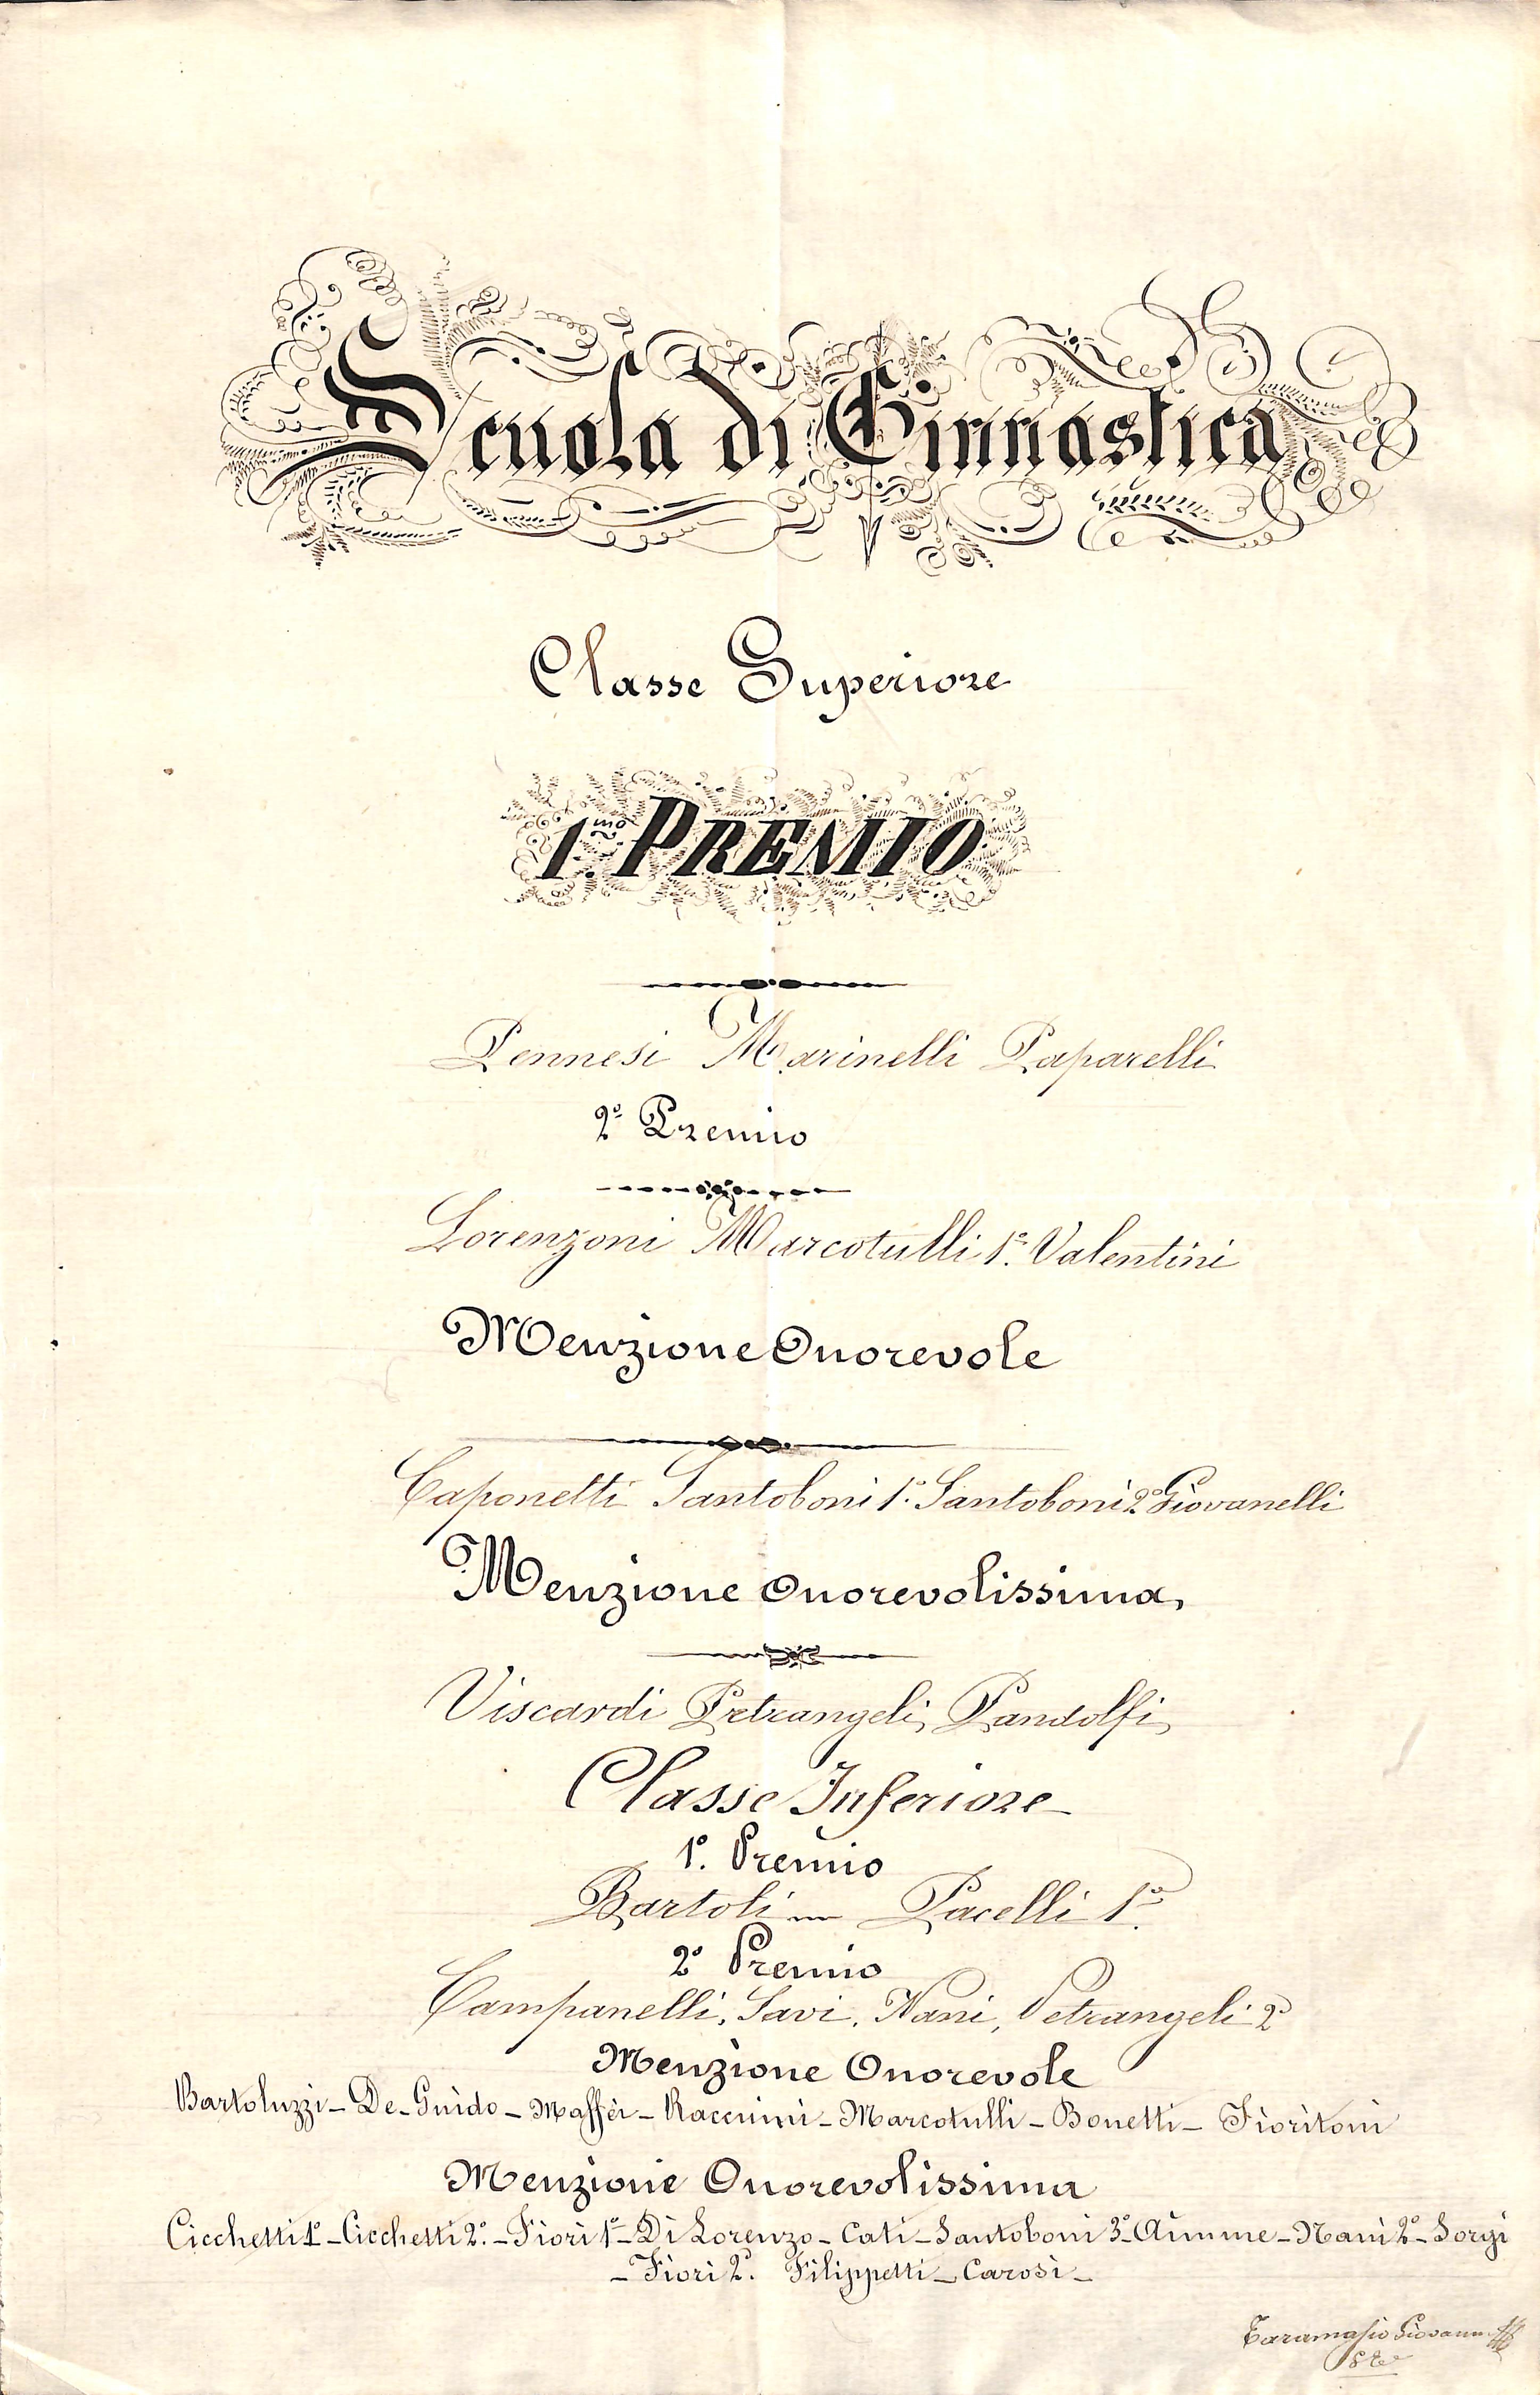 Scuola di Ginnastica
Classe Superiore
1.mo PREMIO
Pennesi Marinelli Paparelli
2º Premio
Lorenzoni Marcotulli 1º Valentini
Menzione Onorevole
Caponetti Santoboni 1º Santoboni 2º Giovanelli
Menzione Onorevolissima,
Viscardi Petrangeli, Pandolfi,
Classe Inferiore
1º. Premio
Bartoli — Pacelli 1º.
2º Premio
Campanelli, Savi, Nani, Petrangeli 2º
Menzione Onorevole
Bartoluzzi - De-Guido - Maffei - Raccuini - Marcotulli - Bonetti - Fioritoni
Menzione Onorevolissima
Cicchetti 1º - Cicchetti 2º. - Fiori 1º - Di Lorenzo - Cati - Santoboni 3º - Aimme - Nani 2º - Sorgi
- Fiori 2º. Filippetti - Carosi -
Taramasio Giovanni